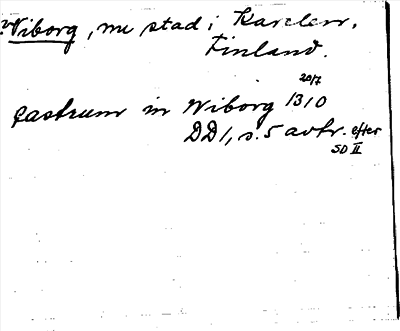 Wiborg, nu stad i Karelen,
Finland.
20/7
Castrum in Wiborg 1310
DD 1, s. 5 avtr. efter
SD II